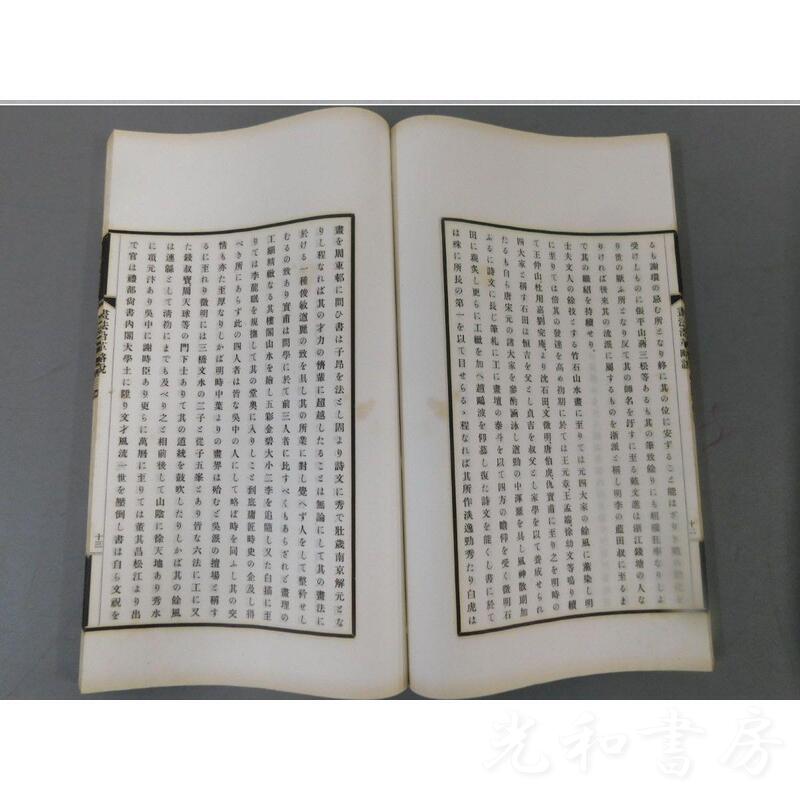 るも謝環の忌む所となり終に其の位に安ずること能はざりき
受けしものに張平山蔣三松等あるも其の筆致餘りにも粗獷狂擧なりしよ
り世の厭ふ所となり反て其の師名を汚すに至る戴文進は浙江錢塘の人な
りければ後來其の流派に屬するものを浙派と稱し明季の藍田叔に至るま
で其の職紐を持續せり
士夫文人の餘技とする竹石山水畫に至りては元四大家の餘風に薰染し明
に至りては倍其の發達を高め初期に於ては王元章王孟端徐幼文等鳴り續
て王仲山杜用嘉劉完庵より沈石田文徵明唐伯虎仇實甫に至り之を明時の
四大家と稱す石田は恒吉を父とし貞吉を叔父とし家學を以て養成せられ
たるも自ら唐宋元の諸大家を參酌涵泳し遒勁の中渾厚を具し風神散朗加
ふるに詩文に長じ筆札に工に畫壇の泰斗を以て四方の瞻仰を受く徵明石
田に親炙し更らに工緻を加へ趙鷗波を仰慕し復た詩文を能くし書に於て
は殊に所長の第一を以て目せらるゝ程なれば其所作淡逸勁秀たり白虎は
畫法沿革略說
十二
畫を周東邨に問ひ書は子昂を法とし固より詩文に秀で壯歲南京解元とな
りし程なれば其の才力の儕輩に超越したることは無論にして其の畫法に
於ける一種俊敏遒麗の致を具し其の所業に對し覺へず人をして整衿せし
むるの致あり實甫は問學に於て前三人者に比すべくもあらざれど畫理の
工細精緻なる其樓閣山水を繪し五彩金碧大小二李を追隨し又た白描に至
りては李龍眠を規撫して其の堂奧に入りしこと到底庸匠時史の企及し得
べき所にあらず此の四人者は皆な吳中の人にして略ば時を同ふし其の交
情も亦た至厚なりしかば明時中葉よりの畫界は殆むど吳派の擅場と稱す
るに至れり微明には三橋文水の二子と從子五峯とあり皆な六法に工に又
た錢叔寶周天球等の門下士ありて其の道統を鼓吹したりしかば其の餘風
は連緜として淸初にまでも及べり之と相前後して山陰に徐天地あり秀水
に項元汴あり吳中に謝時臣あり更らに萬曆に至りては董其昌松江より出
で官は禮部尙書內閣大學士に陞り文才風流一世を壓倒し書は自ら文祝を
畫法沿革略說
十三
光和書房